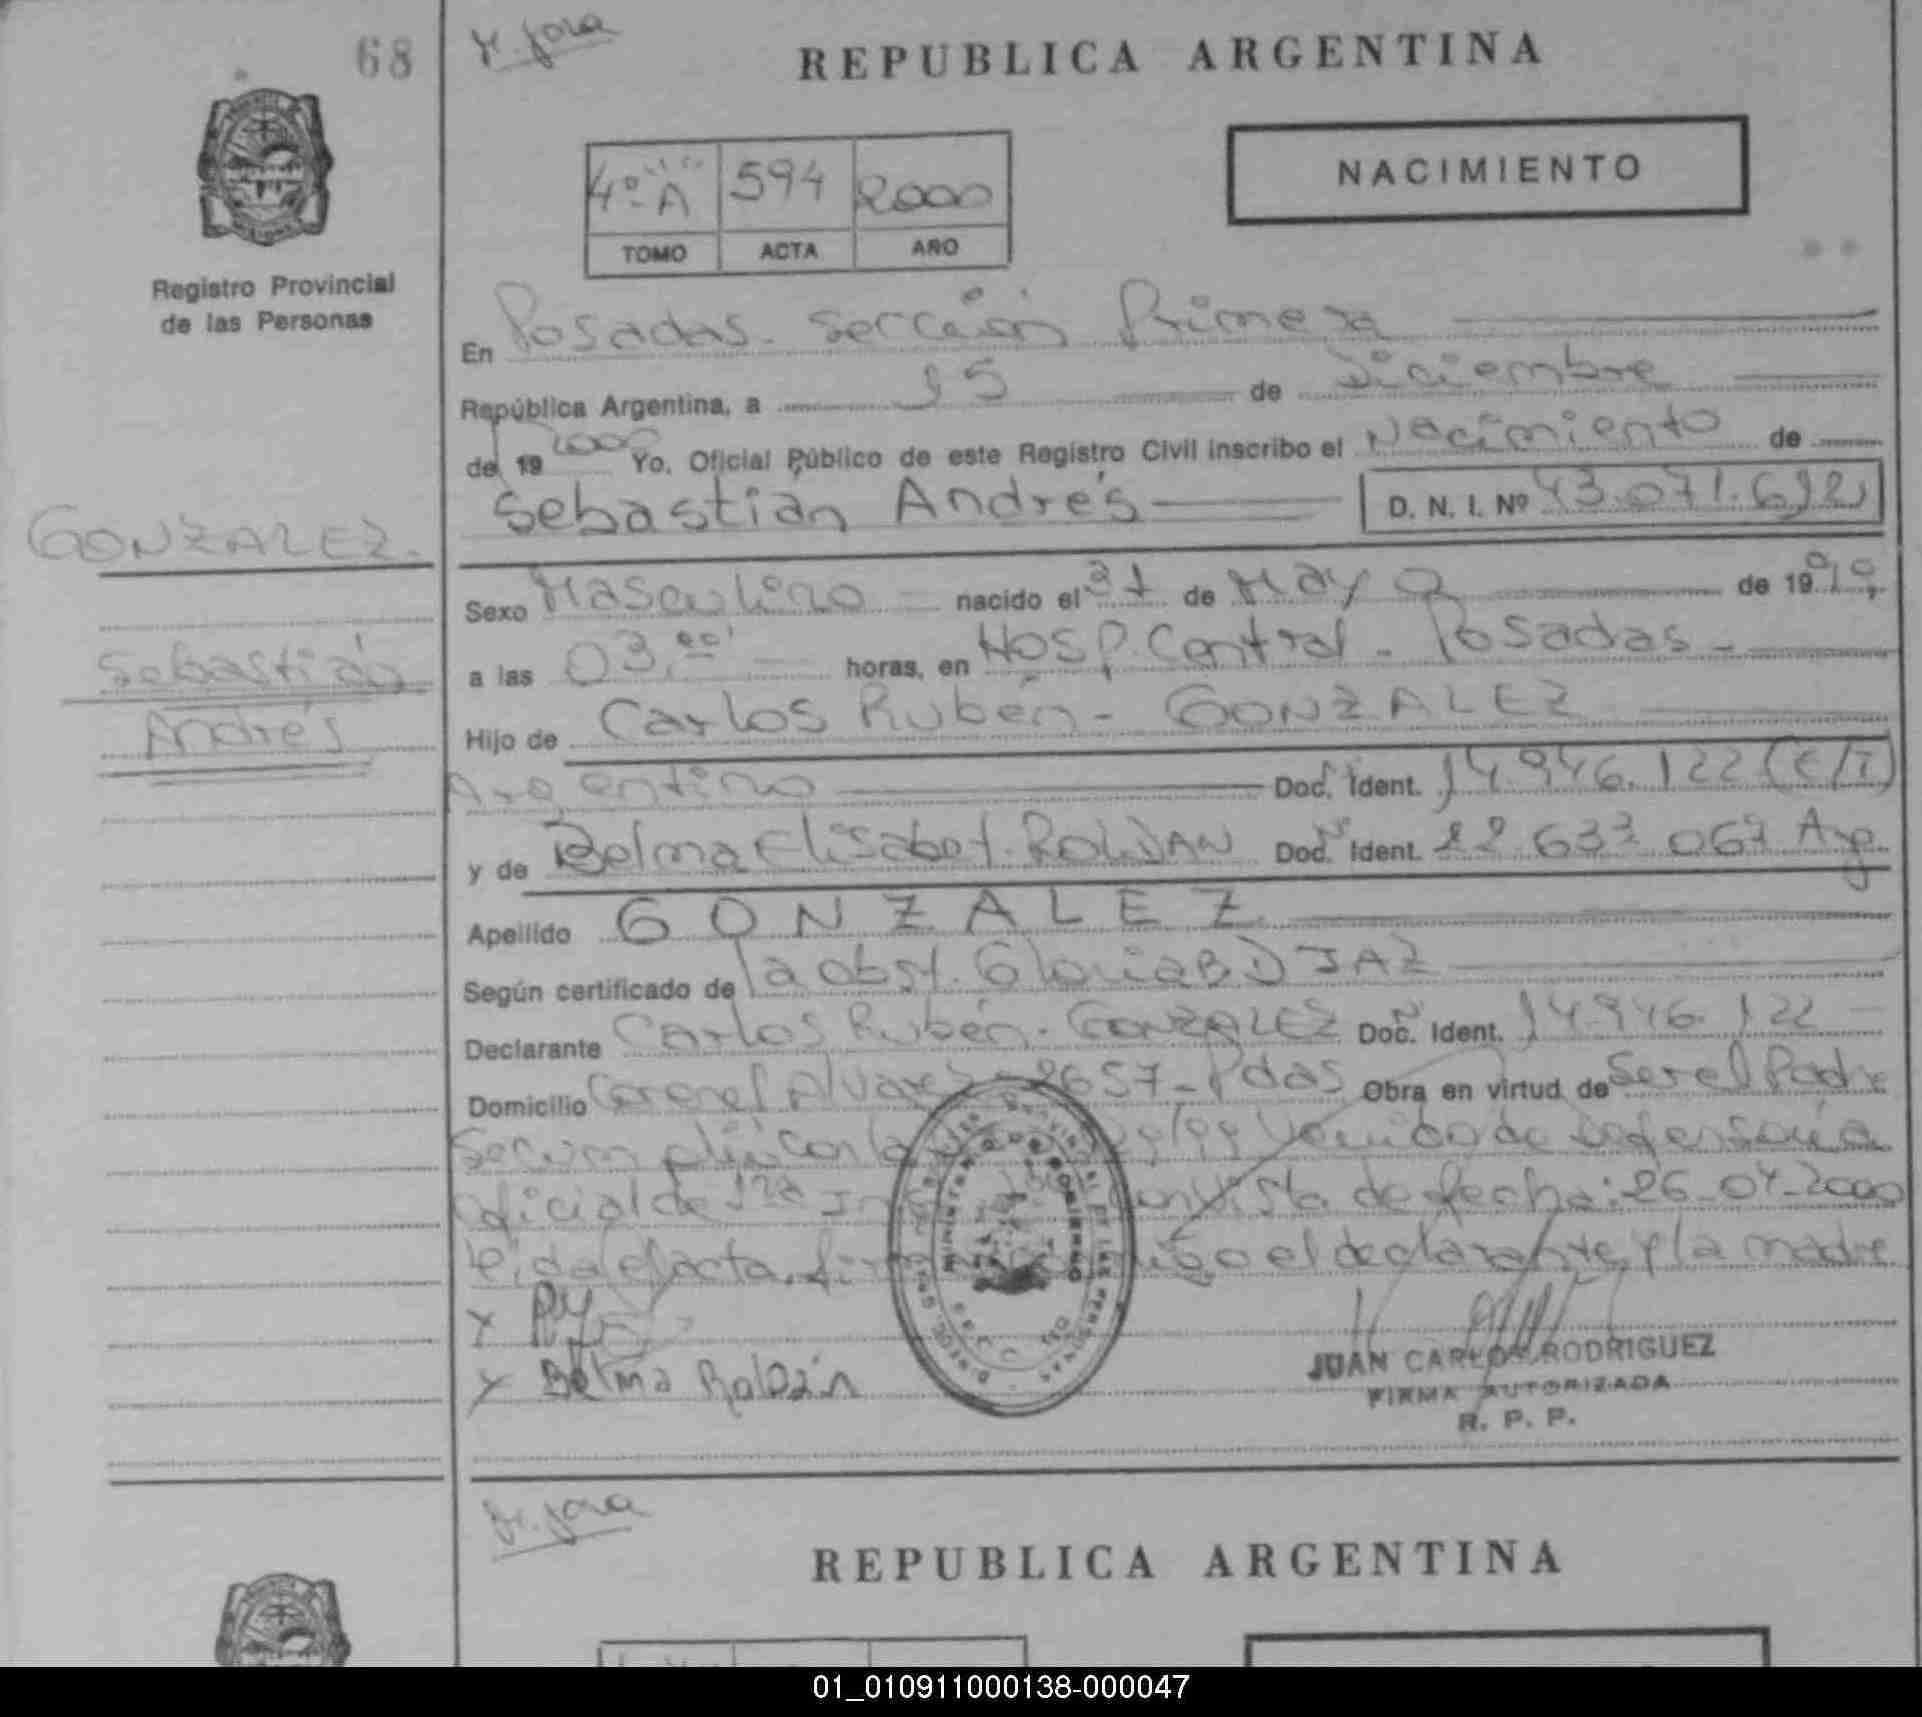 68
REPUBLICA ARGENTINA
NACIMIENTO
4º A 594 2000
TOMO ACTA AÑO
Registro Provincial
de las Personas
En Posadas. Sección Primera
República Argentina, a 15 de Diciembre
de 19 2000 Yo, Oficial Público de este Registro Civil inscribo el Nacimiento de
Sebastián Andrés D. N. I. Nº 43.071.692
GONZALEZ.
Sebastián
Andrés
Sexo Masculino nacido el de Mayo de 19
a las 03.00 horas, en Hosp. Central - Posadas -
Hijo de Carlos Rubén - GONZALEZ
Argentino Doc. Ident. 14.946.122 (E/T)
y de Belma Elisabet. ROLDAN Doc. Ident. 22.637.067 Arg.
Apellido GONZALEZ
Según certificado de la obst. Gloria B DIAZ
Declarante Carlos Rubén. GONZALEZ Doc. Ident. 14.946.122 -
Domicilio Coronel Alvarez 2657 - Pdas Obra en virtud de Ser el Padre
de
oficial de 1ra vista de fecha: 26-04-2000
leida el acta, el declarante y la madre
x
x Belma Roldán
JUAN CARLOS RODRIGUEZ
FIRMA AUTORIZADA
R. P. P.
REPUBLICA ARGENTINA
01_010911000138-000047